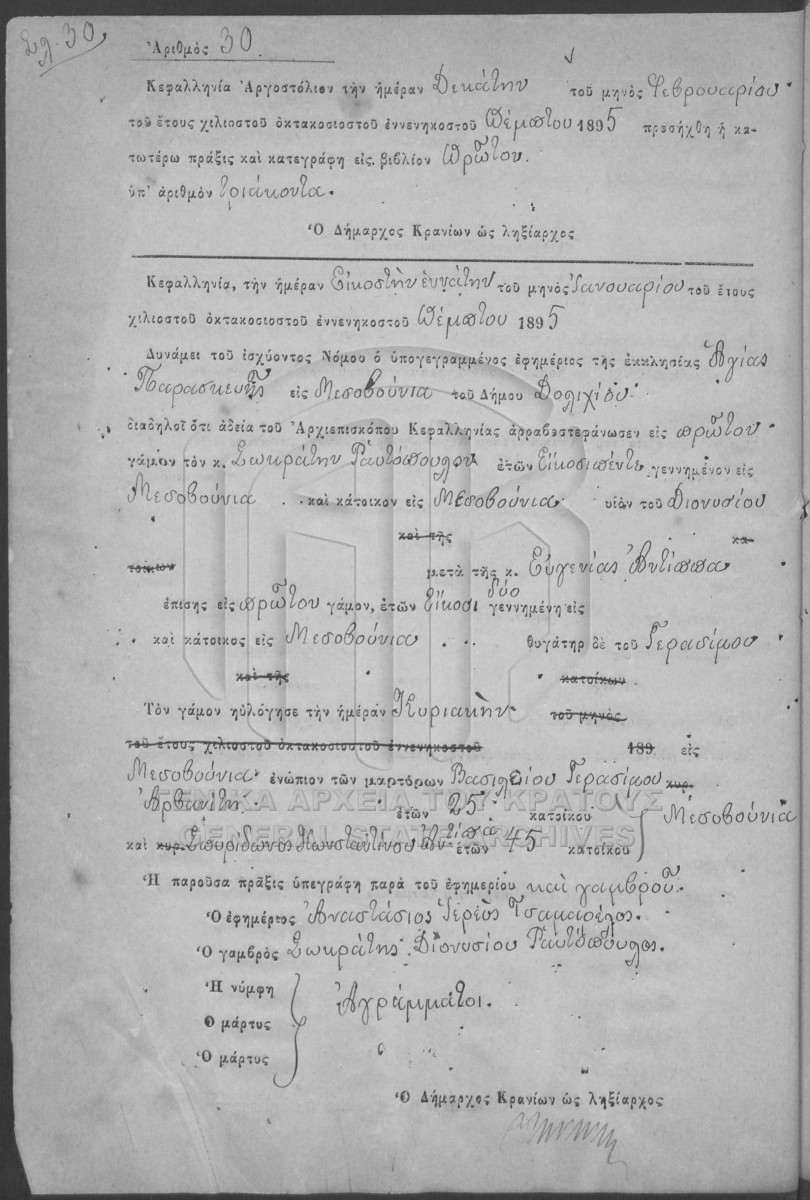 Σλ. 30
Ἀριθμὸς 30.
Κεφαλληνία Ἀργοστόλιον τὴν ἡμέραν Δεκάτην τοῦ μηνὸς Φεβρουαρίου
τοῦ ἔτους χιλιοστοῦ ὀκτακοσιοστοῦ ἐννενηκοστοῦ Πέμπτου 1895 προσήχθη ἡ κα-
τωτέρω πρᾶξις καὶ κατεγράφη εἰς βιβλίον Πρῶτον.
ὑπ' ἀριθμὸν τριάκοντα.
Ὁ Δήμαρχος Κρανίων ὡς ληξίαρχος
Κεφαλληνία, τὴν ἡμέραν Εἰκοστὴν ἐννάτην τοῦ μηνὸς Ἰανουαρίου τοῦ ἔτους
χιλιοστοῦ ὀκτακοσιοστοῦ ἐννενηκοστοῦ Πέμπτου 1895
Δυνάμει τοῦ ἰσχύοντος Νόμου ὁ ὑπογεγραμμένος ἐφημέριος τῆς ἐκκλησίας Ἁγίας
Παρασκευῆς εἰς Μεσοβούνια τοῦ Δήμου Δολιχίου
διαδηλοῖ ὅτι ἀδείᾳ τοῦ Ἀρχιεπισκόπου Κεφαλληνίας ἀρραβοστεφάνωσεν εἰς πρῶτον
γάμον τὸν κ. Σωκράτην Ραυτόπουλον ἐτῶν Εἴκοσιπέντε γεννημένον εἰς
Μεσοβούνια καὶ κάτοικον εἰς Μεσοβούνια υἱὸν τοῦ Διονυσίου
καὶ τῆς κα-
τοίκων μετὰ τῆς κ. Εὐγενίας Ἀντίππα
ἐπίσης εἰς πρῶτον γάμον, ἐτῶν Εἴκοσι δύο γεννημένη εἰς
καὶ κάτοικος εἰς Μεσοβούνια θυγάτηρ δὲ τοῦ Γερασίμου
καὶ τῆς κατοίκων
Τὸν γάμον ηὐλόγησε τὴν ἡμέραν Κυριακὴν τοῦ μηνὸς
τοῦ ἔτους χιλιοστοῦ ὀκτακοσιοστοῦ ἐννενηκοστοῦ 189 εἰς
Μεσοβούνια ἐνώπιον τῶν μαρτύρων Βασιλείου Γερασίμου κυρ.
Ἀρβανίτη ἐτῶν 25 κατοίκου Μεσοβούνια
καὶ κυρ. Σπυρίδωνος Κωνσταντίνου Ἀντίπα ἐτῶν 45 κατοίκου
Ἡ παροῦσα πρᾶξις ὑπεγράφη παρὰ τοῦ ἐφημερίου καὶ γαμβροῦ.
Ὁ ἐφημέριος Ἀναστάσιος Ἱερεὺς Τσαμαρέλος.
Ὁ γαμβρὸς Σωκράτης Διονυσίου Ραυτόπουλος.
Ἡ νύμφη
Ὁ μάρτυς Ἀγράμματοι.
Ὁ μάρτυς
Ὁ Δήμαρχος Κρανίων ὡς ληξίαρχος
ΓΕΝΙΚΑ ΑΡΧΕΙΑ ΤΟΥ ΚΡΑΤΟΥΣ
GENERAL STATE ARCHIVES